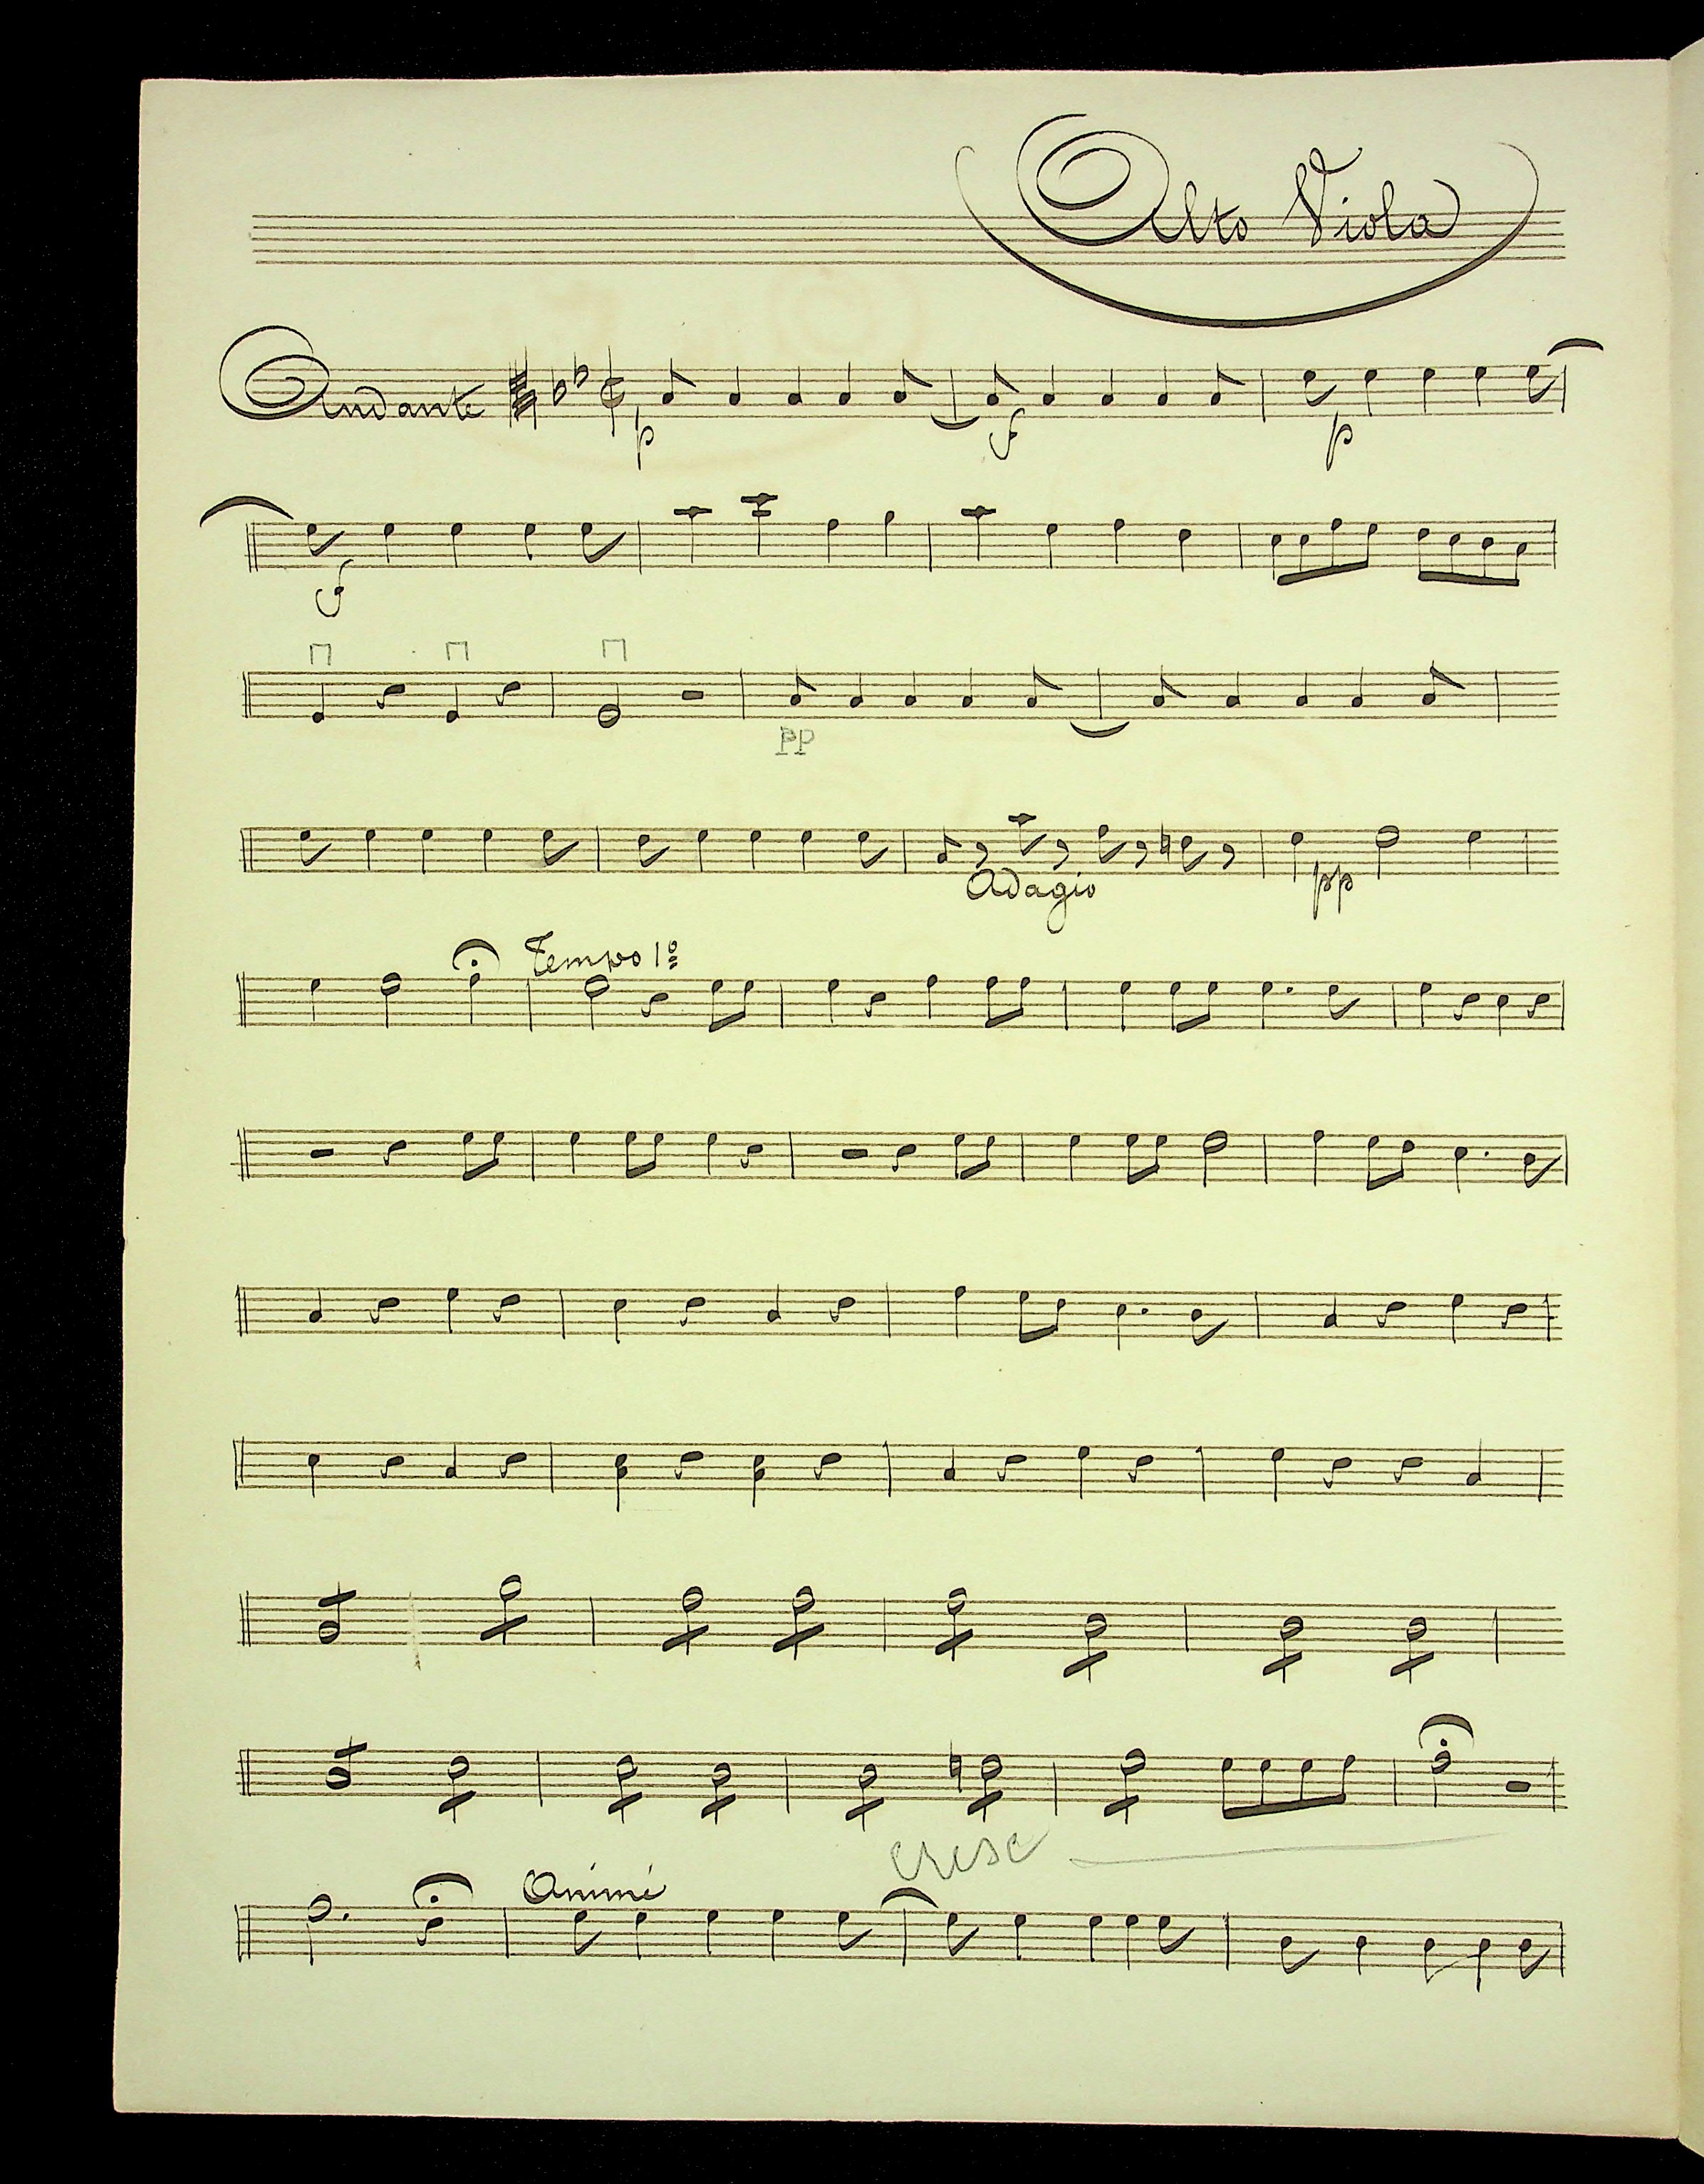 Alto Viola
Andante
p f p
f
pp
Adagio pp
Tempo 1º
cresc
Animé